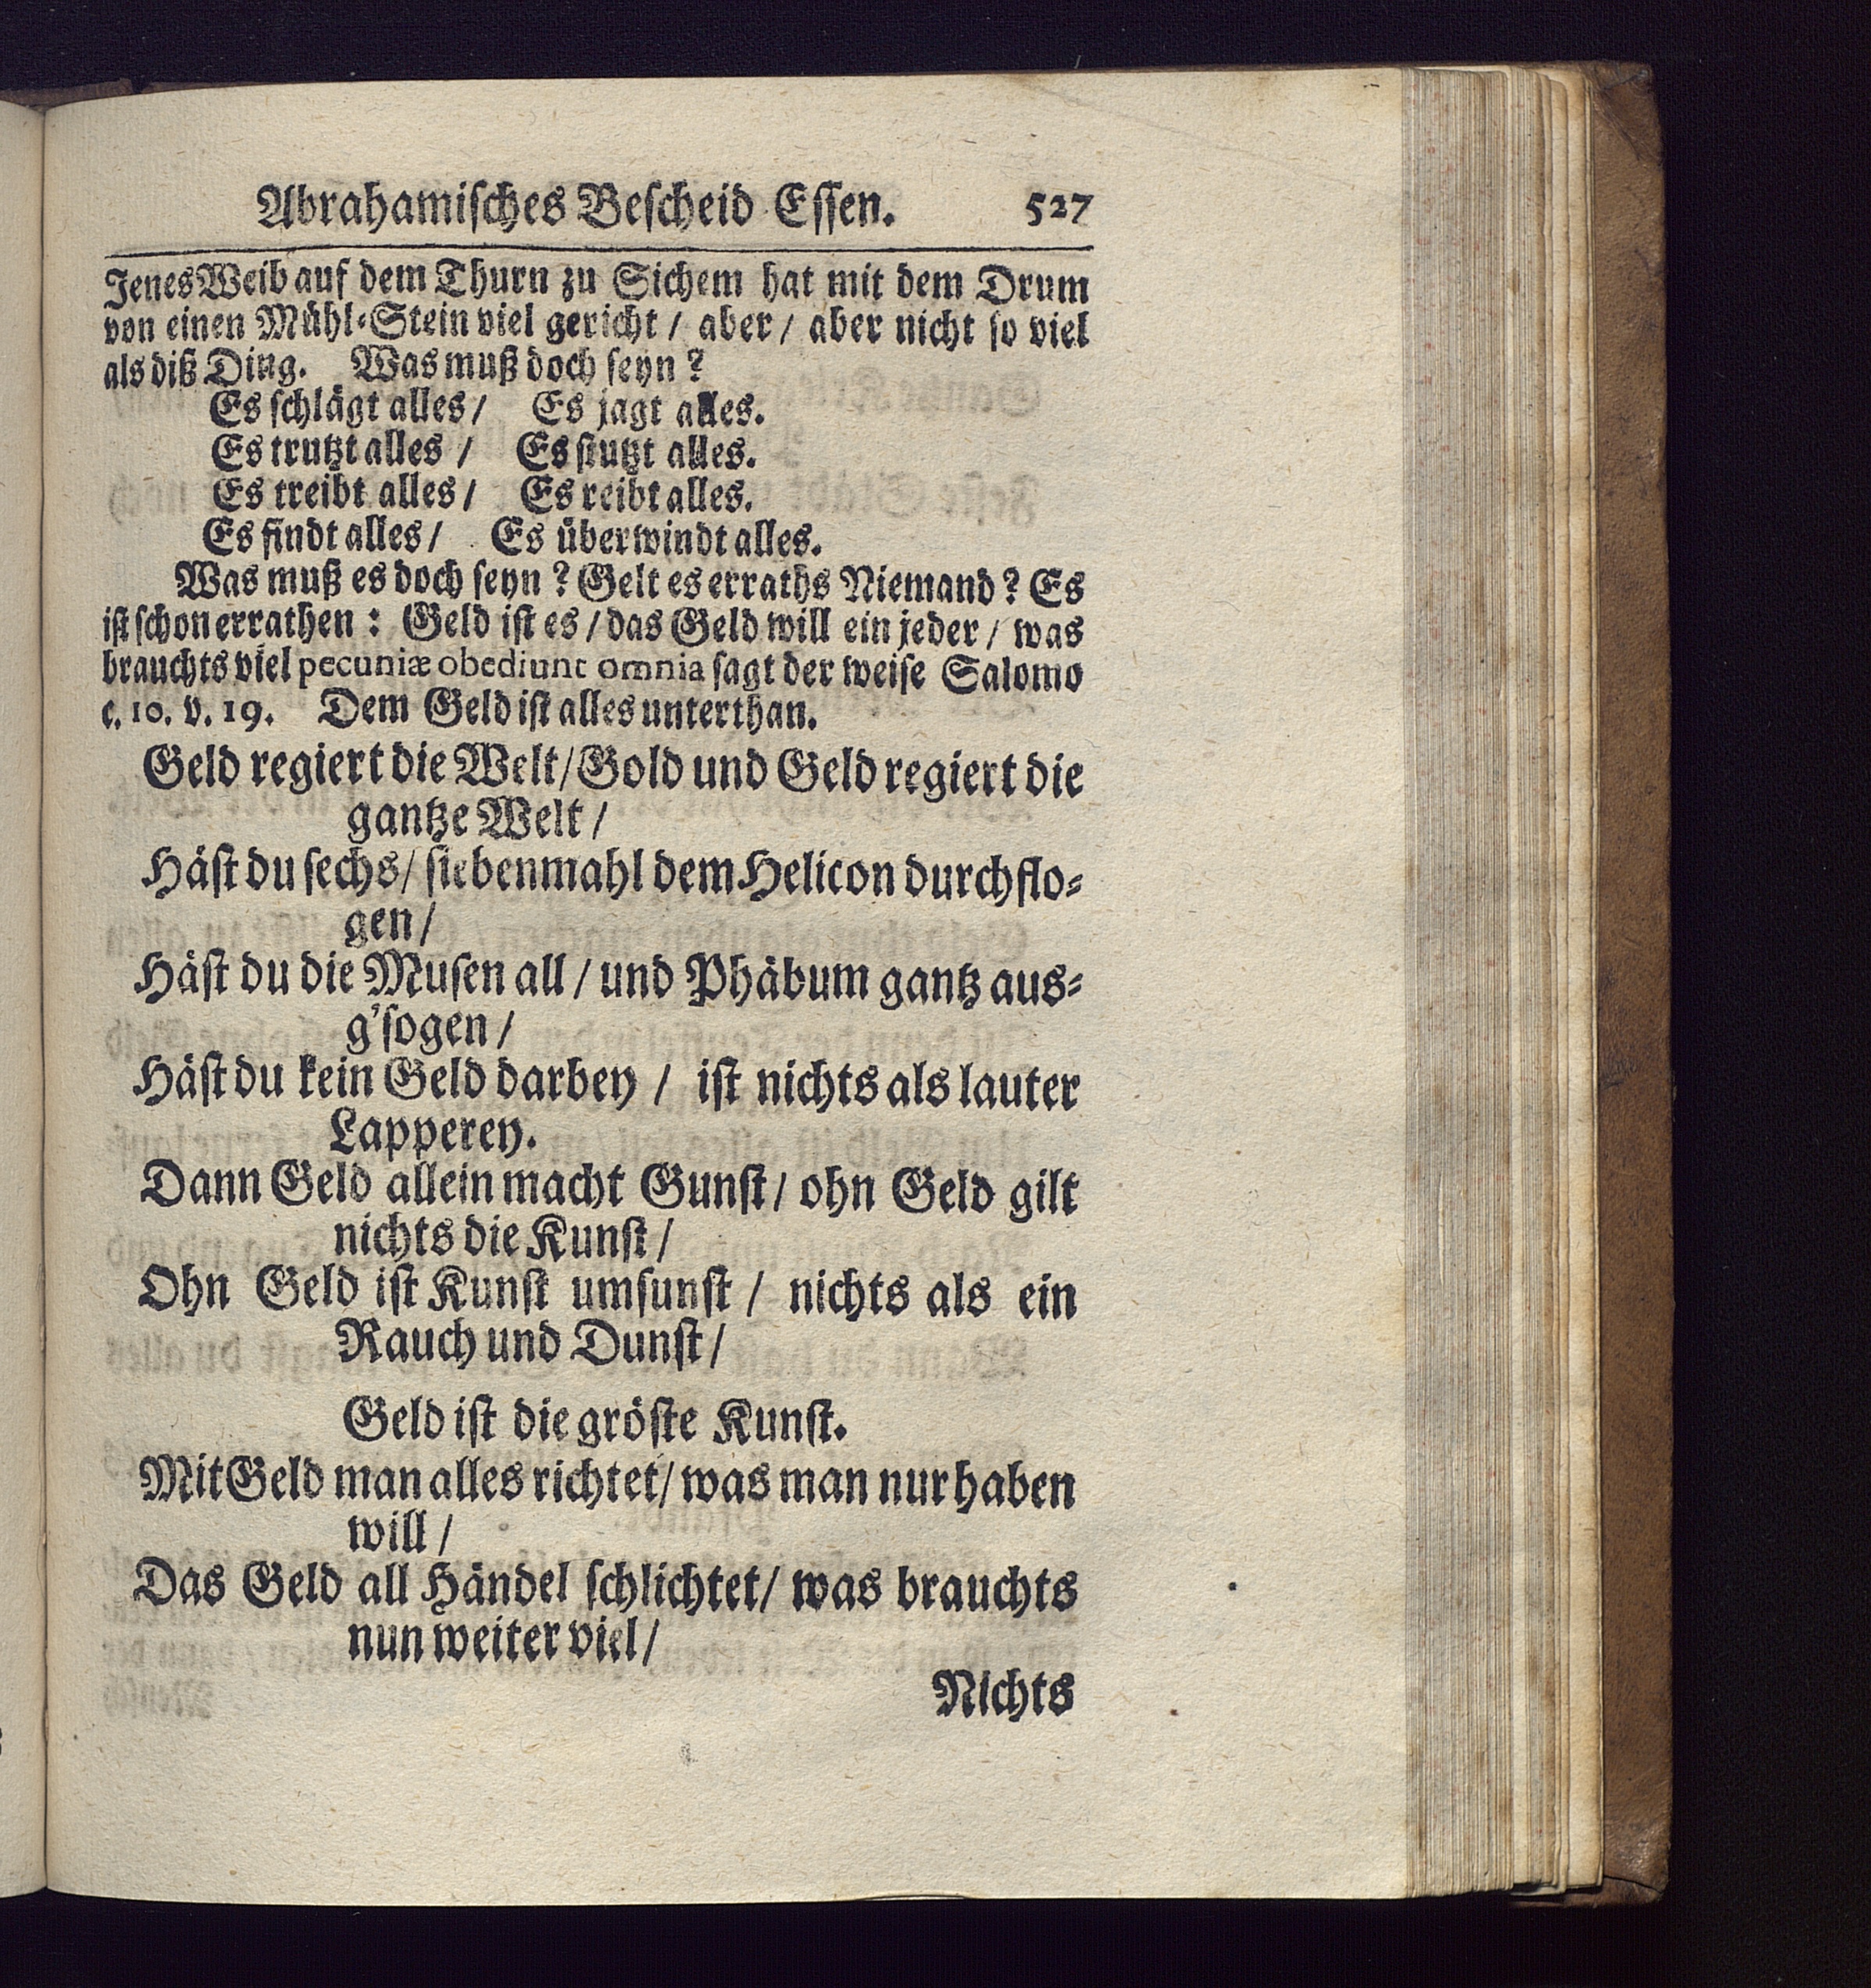 Abrahamiſches Beſcheid Eſſen. 527
Jenes Weib auf dem Thurn zu Sichem hat mit dem Drum
von einen Mühl-Stein viel gericht / aber / aber nicht ſo viel
als diß Ding. Was muß doch ſeyn?
Es ſchlägt alles / Es jagt alles.
Es trutzt alles / Es ſtutzt alles.
Es treibt alles / Es reibt alles.
Es findt alles / Es überwindt alles.
Was muß es doch ſeyn? Gelt es erraths Niemand? Es
iſt ſchon errathen: Geld iſt es / das Geld will ein jeder / was
brauchts viel pecuniæ obediunt omnia ſagt der weiſe Salomo
c. 10. v. 19. Dem Geld iſt alles unterthan.
Geld regiert die Welt / Gold und Geld regiert die
gantze Welt /
Häſt du ſechs / ſiebenmahl dem Helicon durchflo-
gen /
Häſt du die Muſen all / und Phäbum gantz aus-
g'ſogen /
Häſt du kein Geld darbey / iſt nichts als lauter
Lapperey.
Dann Geld allein macht Gunſt / ohn Geld gilt
nichts die Kunſt /
Ohn Geld iſt Kunſt umſunſt / nichts als ein
Rauch und Dunſt /
Geld iſt die gröſte Kunſt.
Mit Geld man alles richtet / was man nur haben
will /
Das Geld all Händel ſchlichtet / was brauchts
nun weiter viel /
Nichts